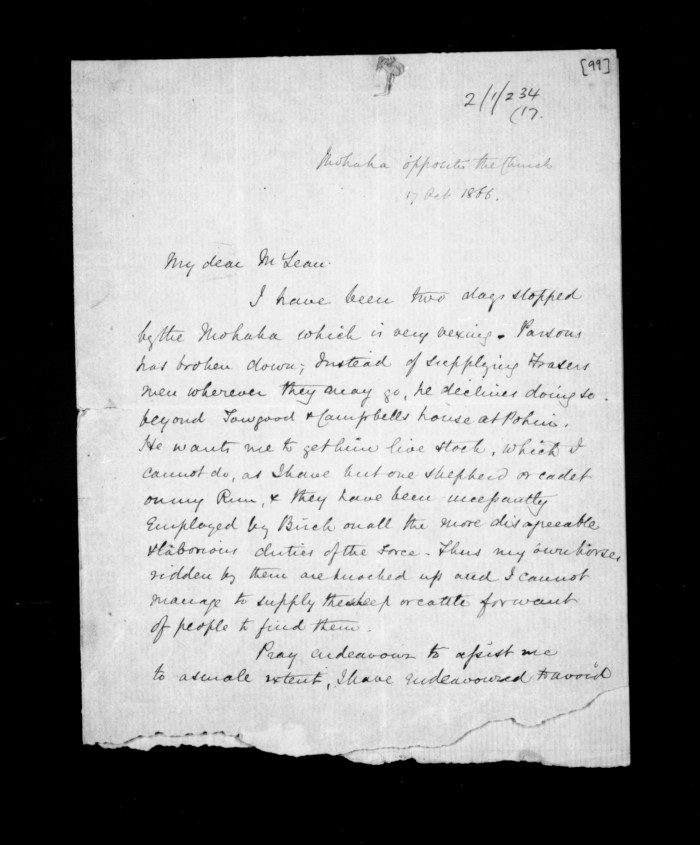 [99]
2/1/234
(17.
Mohaka opposite the Church
17 Oct 1866.
My dear McLean.
I have been two days stopped
by the Mohaka which is very vexing. Parsons
has broken down; Instead of supplying Frasers
men wherever they may go, he declines doing so.
beyond Towgood & Campbells house at Pohui.
He wants me to get him live stock, which I
cannot do, as I have but one shepherd or cadet
on my Run, & they have been incessantly
Employed by Birch on all the more disagreeable
& laborious duties of the Force - Thus my own horses
ridden by them are knocked up and I cannot
manage to supply the sheep or cattle for want
of people to find them.
Pray endeavour to assist me
to a small extent, I have endeavoured to avoid